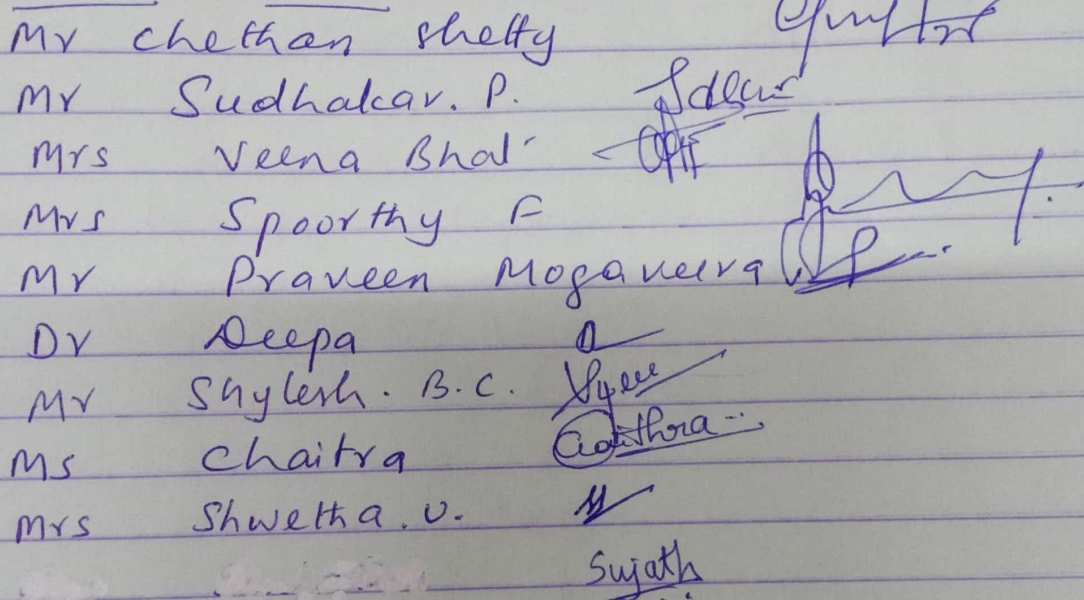 Mr chethan shetty
Mr Sudhakar. P.
Mrs Veena Bhat
Mrs Spoorthy F
Mr Praveen Mogaveera
Dr Deepa
Mr Shylesh. B.C.
Ms Chaitra Chaithra
Mrs Shwetha. U.
Sujath